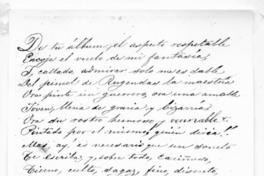 De tu álbum, el aspecto respetable
Encoge el vuelo de mi fantasía,
Y callada admirar solo me es dable
Del pincel de Rugendas la maestría
Ora pinte un guerrero, ora una amable
Jóven, llena de gracia y bizarria
Ora su rostro hermoso y venerable
Pintado por él mismo ¿quién diria?
Mas ay! es necesario que un soneto
Te escriba; y sobre todo, cariñoso,
Tierno, culto, sagaz, fino, discreto